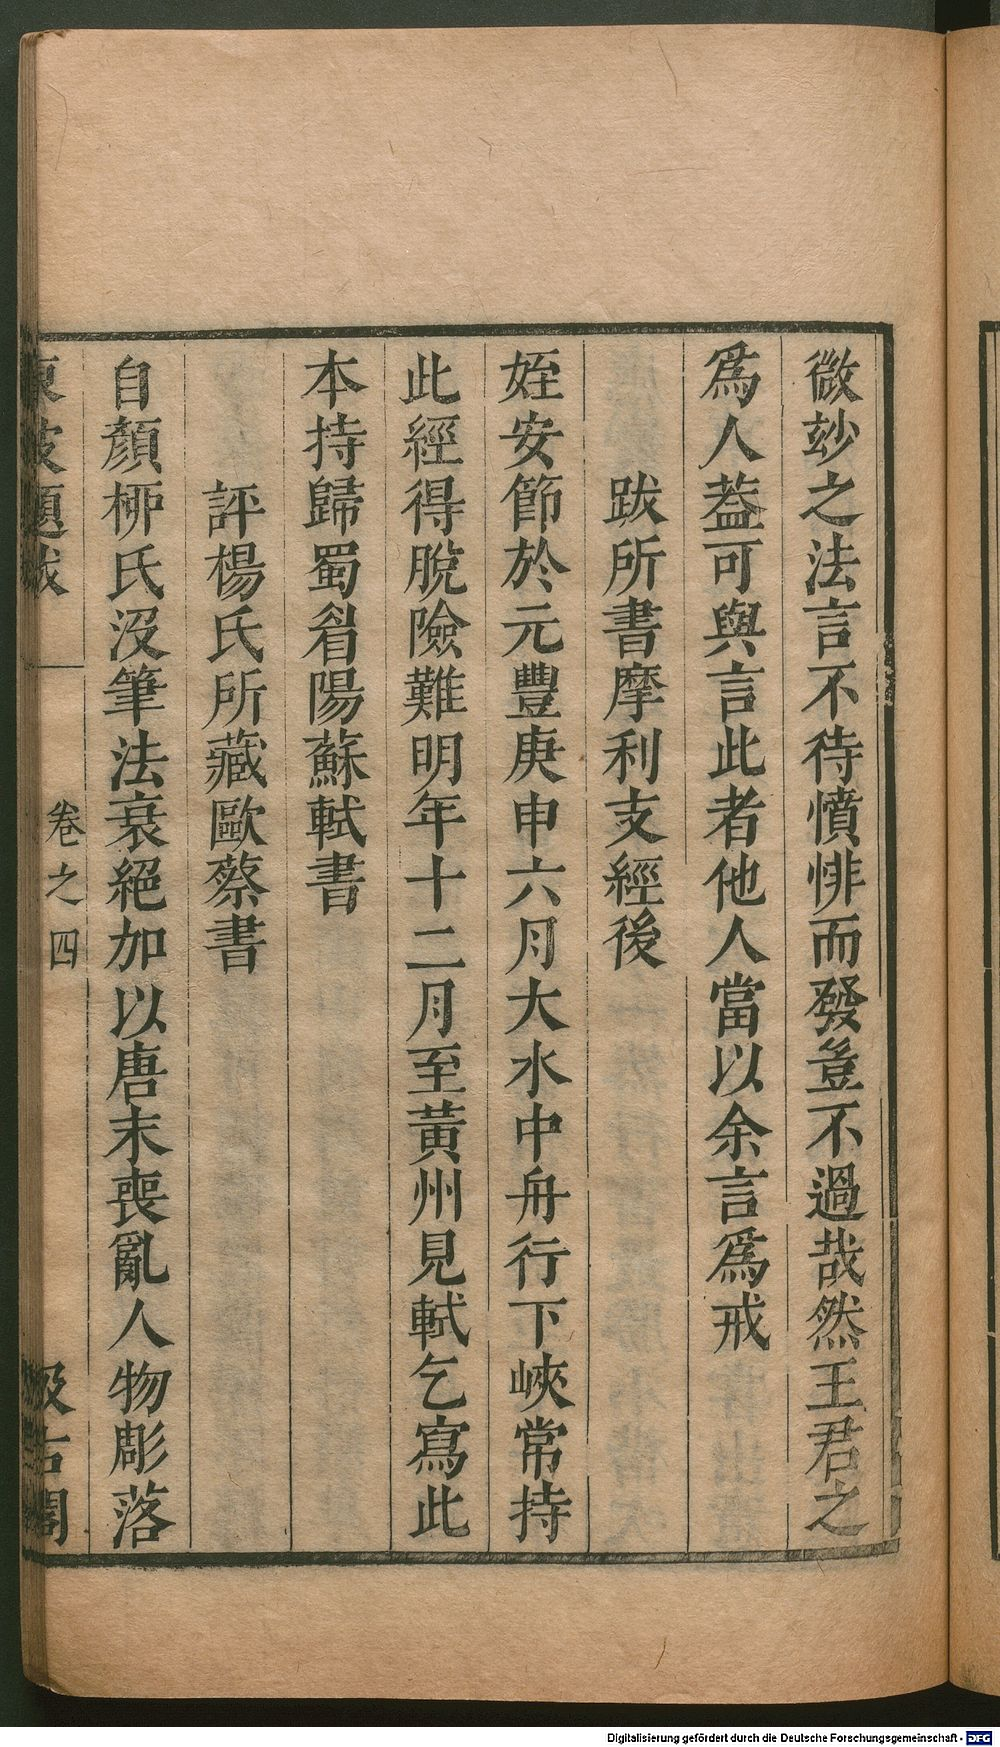 微玅之法言不待憤悱而發豈不過哉然王君之
爲人葢可與言此者他人當以余言爲戒
跋所書摩利支經後
姪安節於元豐庚申六月大水中舟行下峽常持
此經得脫險難明年十二月至黃州見軾乞寫此
本持歸蜀眉陽蘇軾書
評楊氏所藏歐蔡書
自顏桺氏沒筆法衰絕加以唐末喪亂人物彫落
東坡題跋
卷之四
汲古閣
Digitalisierung gefördert durch die Deutsche Forschungsgemeinschaft - DFG